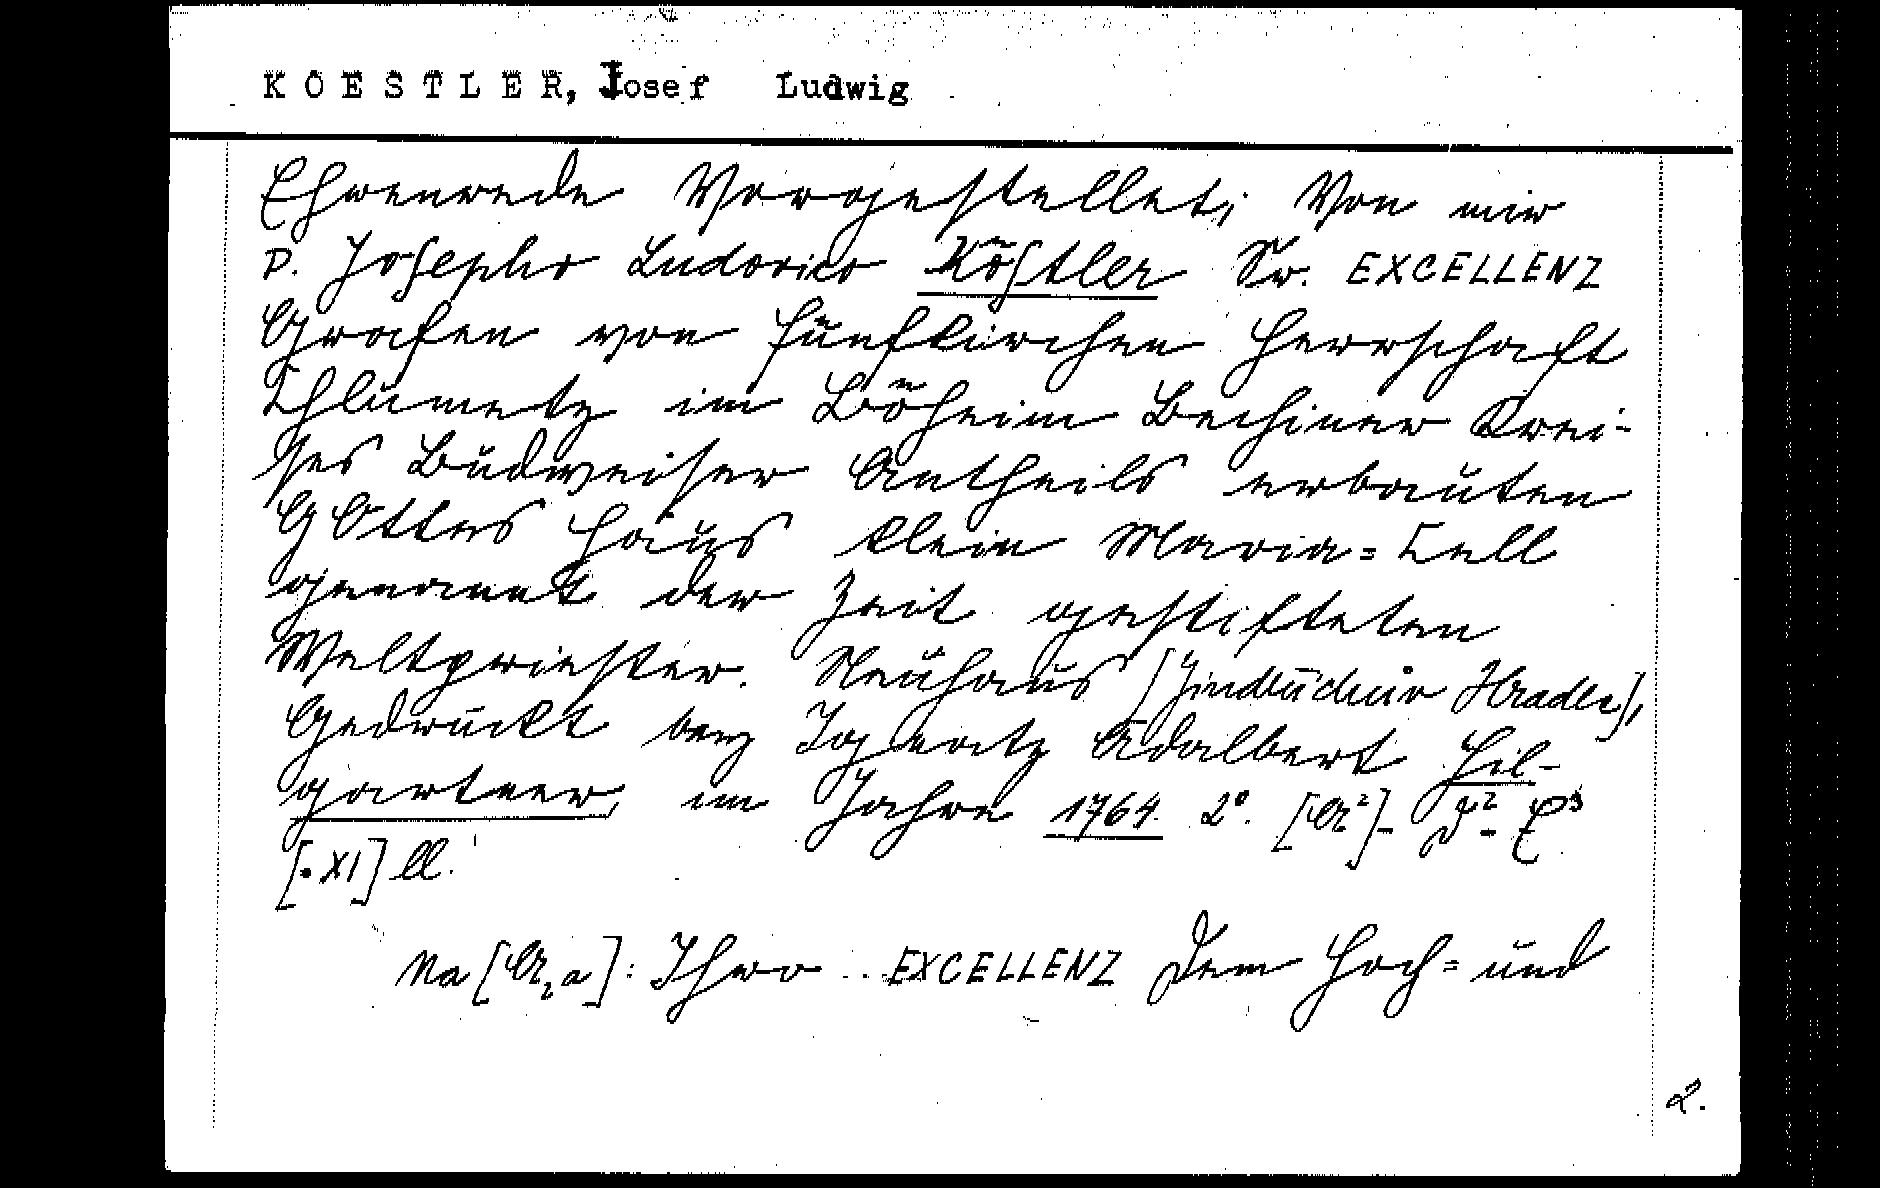 KOESTLER, Josef Ludwig
Ehrenrede Vorgestellet; Von mir
P. Josepho Ludovico Köstler Sr. EXCELLENZ
Grafen von Fünfkirchen Herrschaft
Chlumetz im Böheim Bechiner Krei-
ses Budweiser Antheils erbauten
GOttes Haus klein Maria=Zell
genannt der Zeit gestifteten
Weltpriester. Neuhaus [Jindřichův Hradec],
Gedruckt bey Ignatz Adalbert Hil-
gartner, im Jahre 1764. 2°. [A²]- - E³
[.XI] ll.
Na [A₂a]: Ihro ... EXCELLENZ Dem Hoch= und
2.